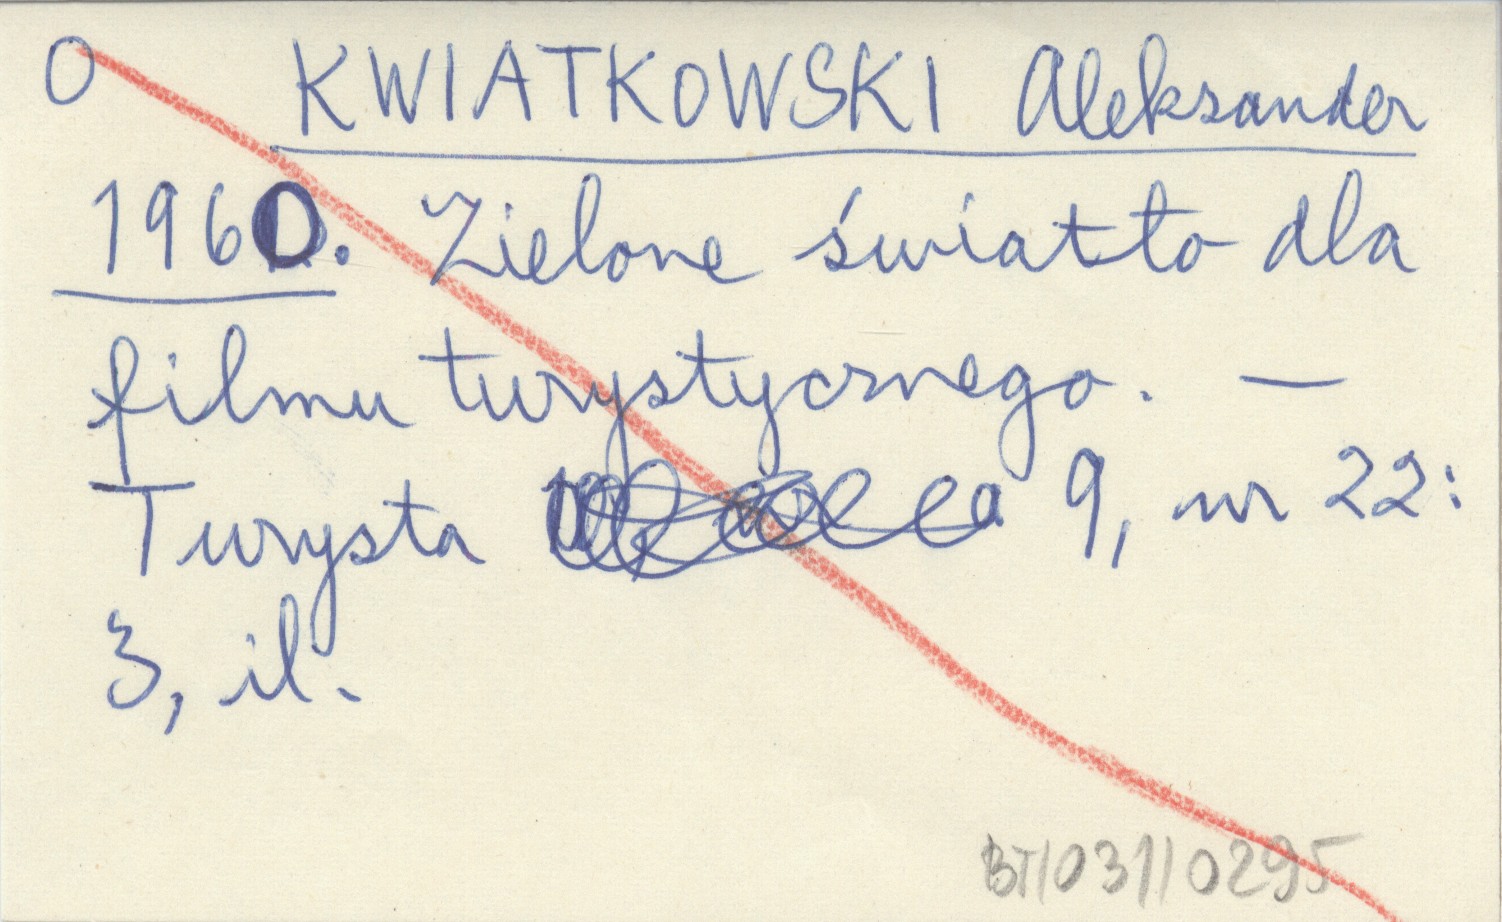 O KWIATKOWSKI Aleksander
1960. Zielone światło dla
filmu turystycznego. —
Turysta 9, nr 22:
3, il.
BT/031/0295